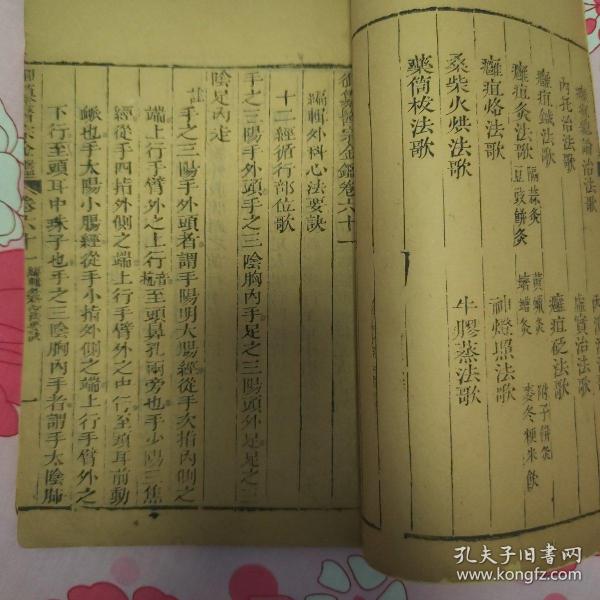 癰疽總論治法歌
內托治法歌
虛實治法歌
癰疽鍼法歌
癰疽砭法歌
癰疽灸法歌 隔蒜灸 黃蠟灸 附子餅灸
豆豉餅灸 蠐螬灸 麥冬粳米飲
癰疽烙法歌
神燈照法歌
桑柴火烘法歌
牛膠蒸法歌
藥筒拔法歌
御纂醫宗金鑑卷六十一
編輯外科心法要訣
十二經循行部位歌
手之三陽手外頭手之三陰胸內手足之三陽頭外足足之三
陰足內走
註 手之三陽手外頭者謂手陽明大腸經從手次指內側之
端上行手臂外之上行至頭鼻孔兩旁也手少陽三焦
經從手四指外側之端上行手臂外之中行至頭耳前動
脈也手太陽小腸經從手小指外側之端上行手臂外之
下行至頭耳中珠子也手之三陰胸內手者謂手太陰肺
卷六十一
一
孔夫子旧书网
www.kongfz.com